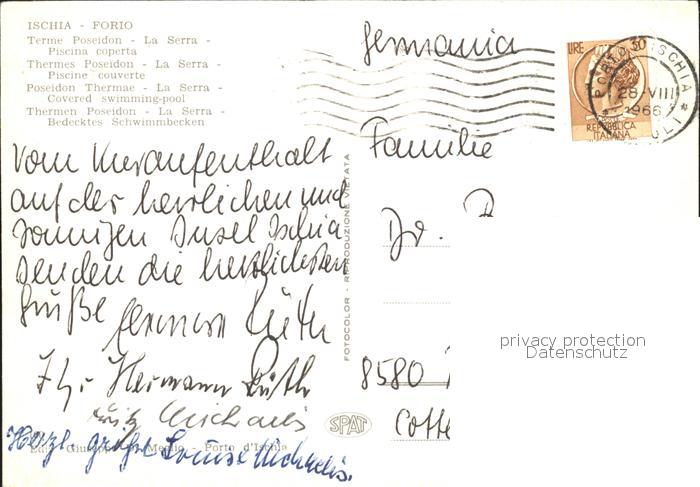 ISCHIA - FORIO
Terme Poseidon - La Serra -
Piscina coperta
Thermes Poseidon - La Serra -
Piscine couverte
Poseidon Thermae - La Serra -
Covered swimming-pool
Thermen Poseidon - La Serra -
Bedecktes Schwimmbecken
Germania
LIRE 30
REPUBBLICA
ITALIANA
PORTO D'ISCHIA
28 VIII
1966
Vom Kuraufenthalt
auf der herrlichen und
sonnigen Insel Ischia
senden die herzlichsten
Grüße
Hermann Lüth
Fritz Michaelis
Herzl. grüßt Louise Michaelis.
FOTOCOLOR - RIPRODUZIONE VIETATA
Familie
Dr.
8580
Cotte
SPAT
Porto d'Ischia
privacy protection
Datenschutz